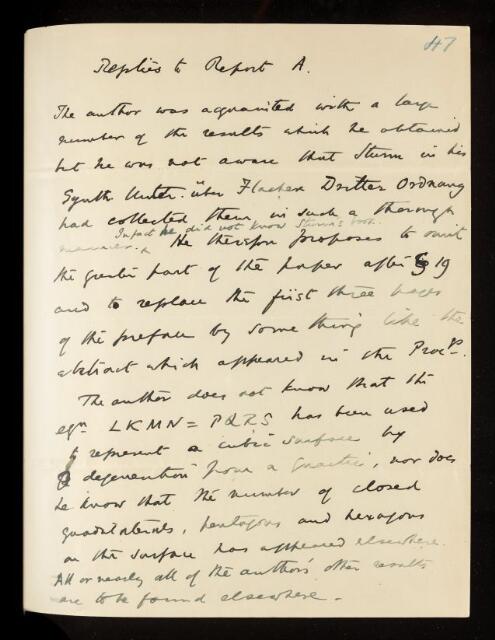 47
Replies to Report A.
The author was acquainted with a large
number of the results which he obtained
but he was not aware that Sturm in his
Synth. Unter. über Flächen Dritter Ordnung
had collected them in such a thorough
In fact he did not know Sturm's book.
manner. He therefore proposes to omit
the greater part of the paper after § 19
and to replace the first three pages
of the preface by something like the
abstract which appeared in the Procgs.
The author does not know that the
eqn LKMN = PQRS has been used
to represent a cubic surface by
degeneration from a quartic, nor does
he know that the number of closed
quadrilaterals, pentagons and hexagons
on the surface has appeared elsewhere.
All or nearly all of the author's other results
are to be found elsewhere.